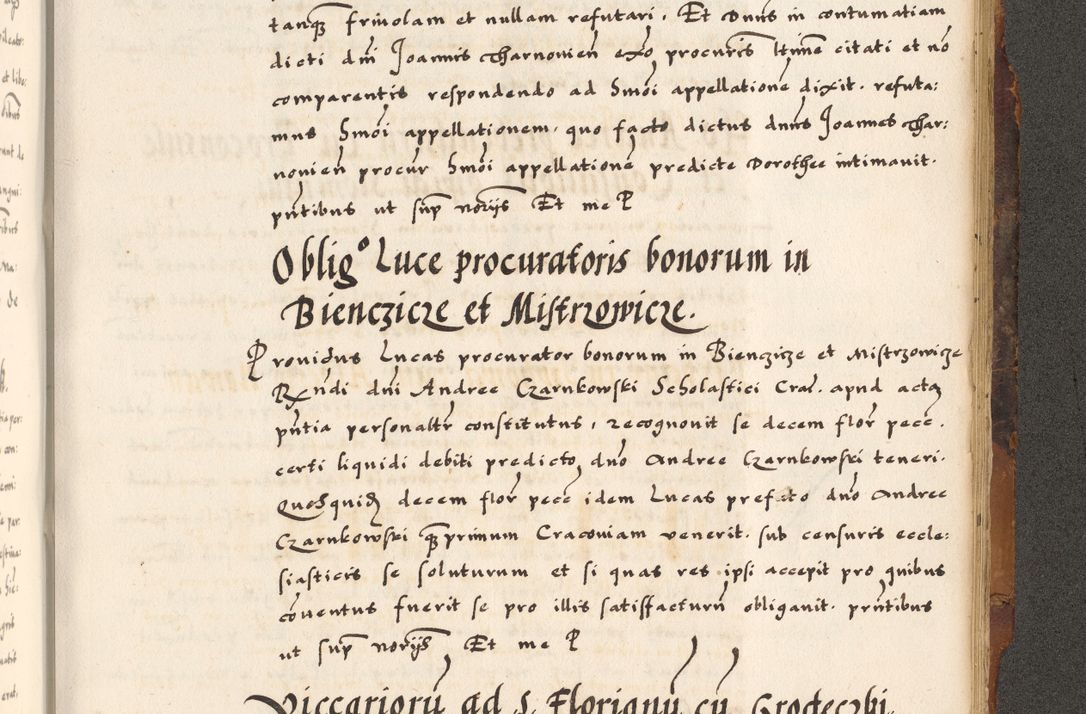 tanq̃ friuolam et nullam refutari. Et Dnus in contumatiam
dicti dni Joannis Tharnouien̄ exo procuris ltīme citati et nō
comparentis respondendo ad Smōi appellationē dixit. refuta:
mus Smōi appellationem. quo facto dictus dnus Joannes Thar:
nouień procur Smōi appellationē predicte Dorothee intimauit.
pn̄tibus ut sup̃ norijs Et me P
Oblig° Luce procuratoris bonorum in
Bienczicze et Mistrzowicze.
Prouidus Lucas procurator bonorum in Bienczicze et Mistrzowicze
Rx̄ndi dni Andree Czarnkowski Scholastici Crac̃. apud acta
pn̄tia personalr̄ constitutus, recognouit se decem flor̄ pecc̄.
certi liquidi debiti predicto dno Andree Czarnkowski teneri.
Quosquid̃ decem flor̄ pecc̄ idem Lucas prefato dno Andree
Czarnkowski q̃primum Cracouiam venerit. sub censuris eccle:
siasticis se soluturum et si quas res ipsi accepit pro quibus
cōuentus fuerit se pro illis satisfacturū obligauit. prn̄tibus
ut sup̃ norijs Et me P
Viccarioru ad S. Florianū cū Grodeczki